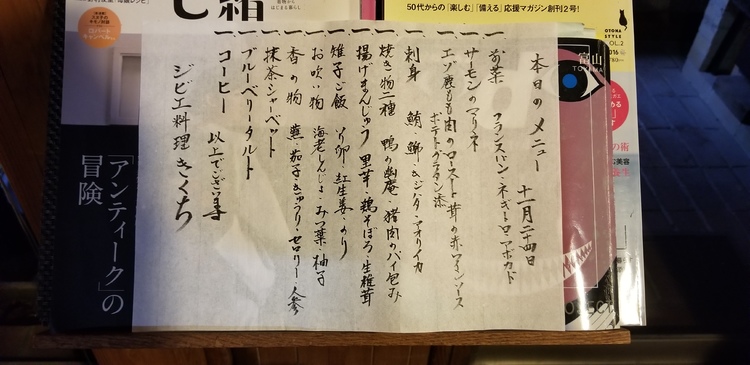 本日のメニュー 十一月二十四日
一 前菜 フランスパン・ネギトロ・アボカド
一 サーモンのマリネ
一 エゾ鹿もも肉のロースト 茸の赤ワインソース
ポテトグラタン添
一 刺身 鮪・鰤・キジハタ・アオリイカ
一 焼き物二種 鴨の幽庵・猪肉のパイ包み
一 揚げまんじゅう 里芋・鶏そぼろ・生椎茸
一 雉子ご飯 い卵・紅生姜・のり
一 お吹い物 海老しんじょ・みつ葉 柚子
一 香の物 蕪・茄子・きゅうり・セロリー 人参
一 抹茶シャーベット
一 ブルーベリータルト
一 コーヒー 以上でございます
ジビエ料理 きくち
「アンティーク」の
冒険
50代からの「楽しむ」「備える」応援マガジン創刊2号!
OTONA
STYLE
VOL.2
2016
富山
TOYAMA